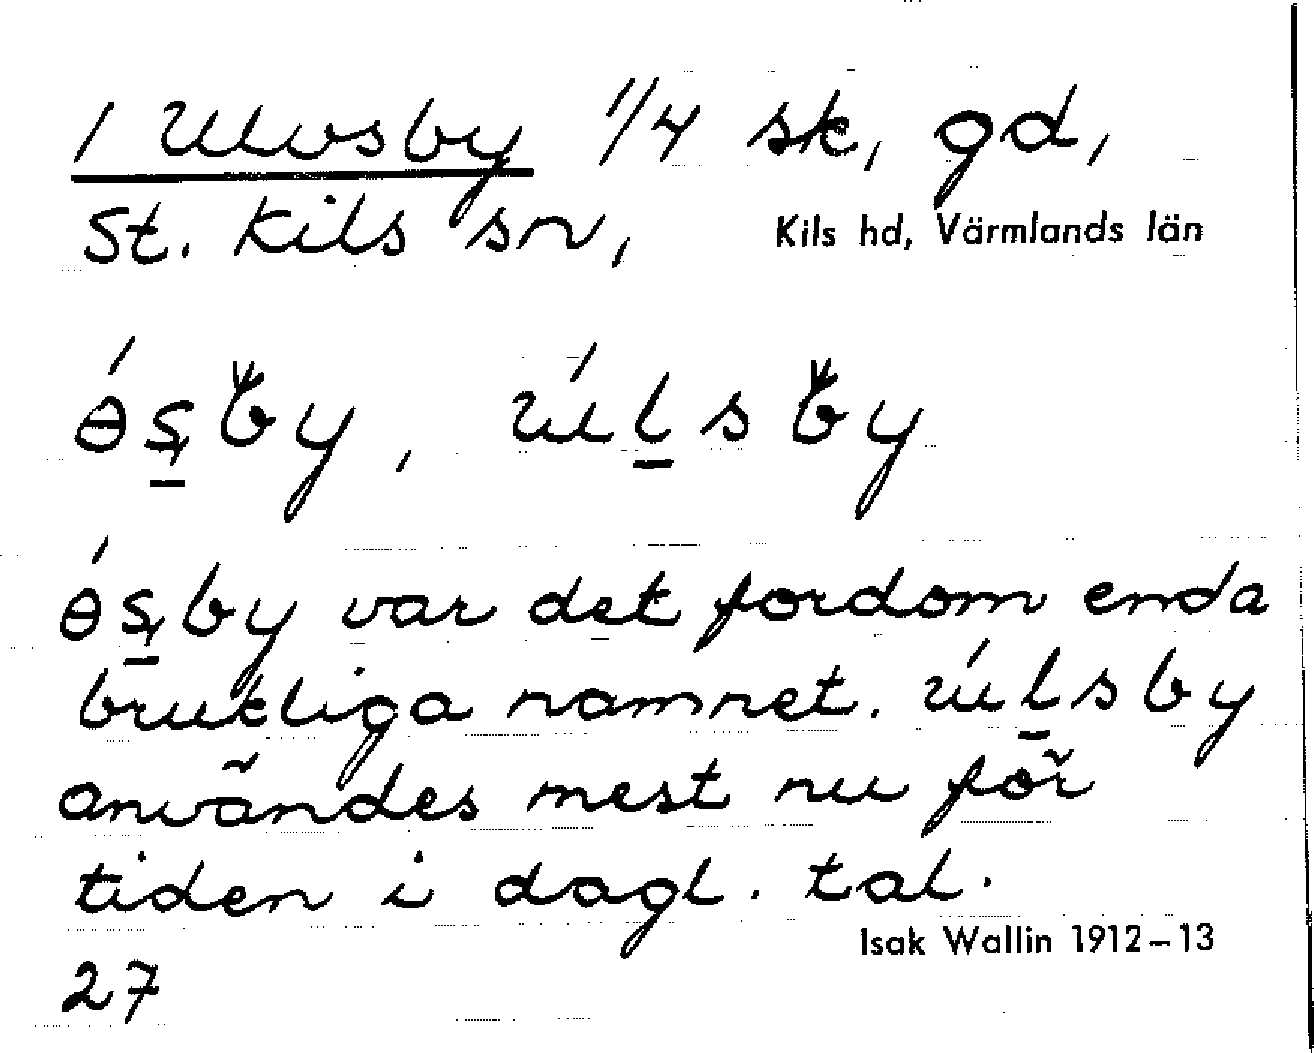 1 Ulvsby 1/4 sk, gd,
St. Kils sn, Kils hd, Värmlands län
ɵ́s̱by, úḻsby
ɵ́s̱by var det fordom enda
brukliga namnet. úḻsby
användes mest nu för
tiden i dagl. tal.
Isak Wallin 1912–13
27